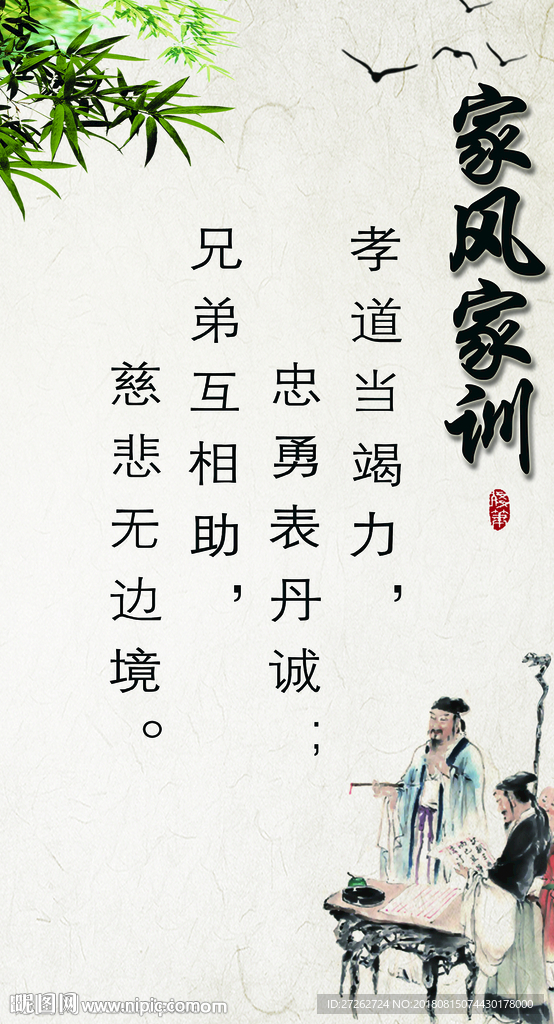 家风家训
孝道当竭力，
忠勇表丹诚；
兄弟互相助，
慈悲无边境。
昵图网 www.nipic.com
ID:27262724 NO:20180815074430178000